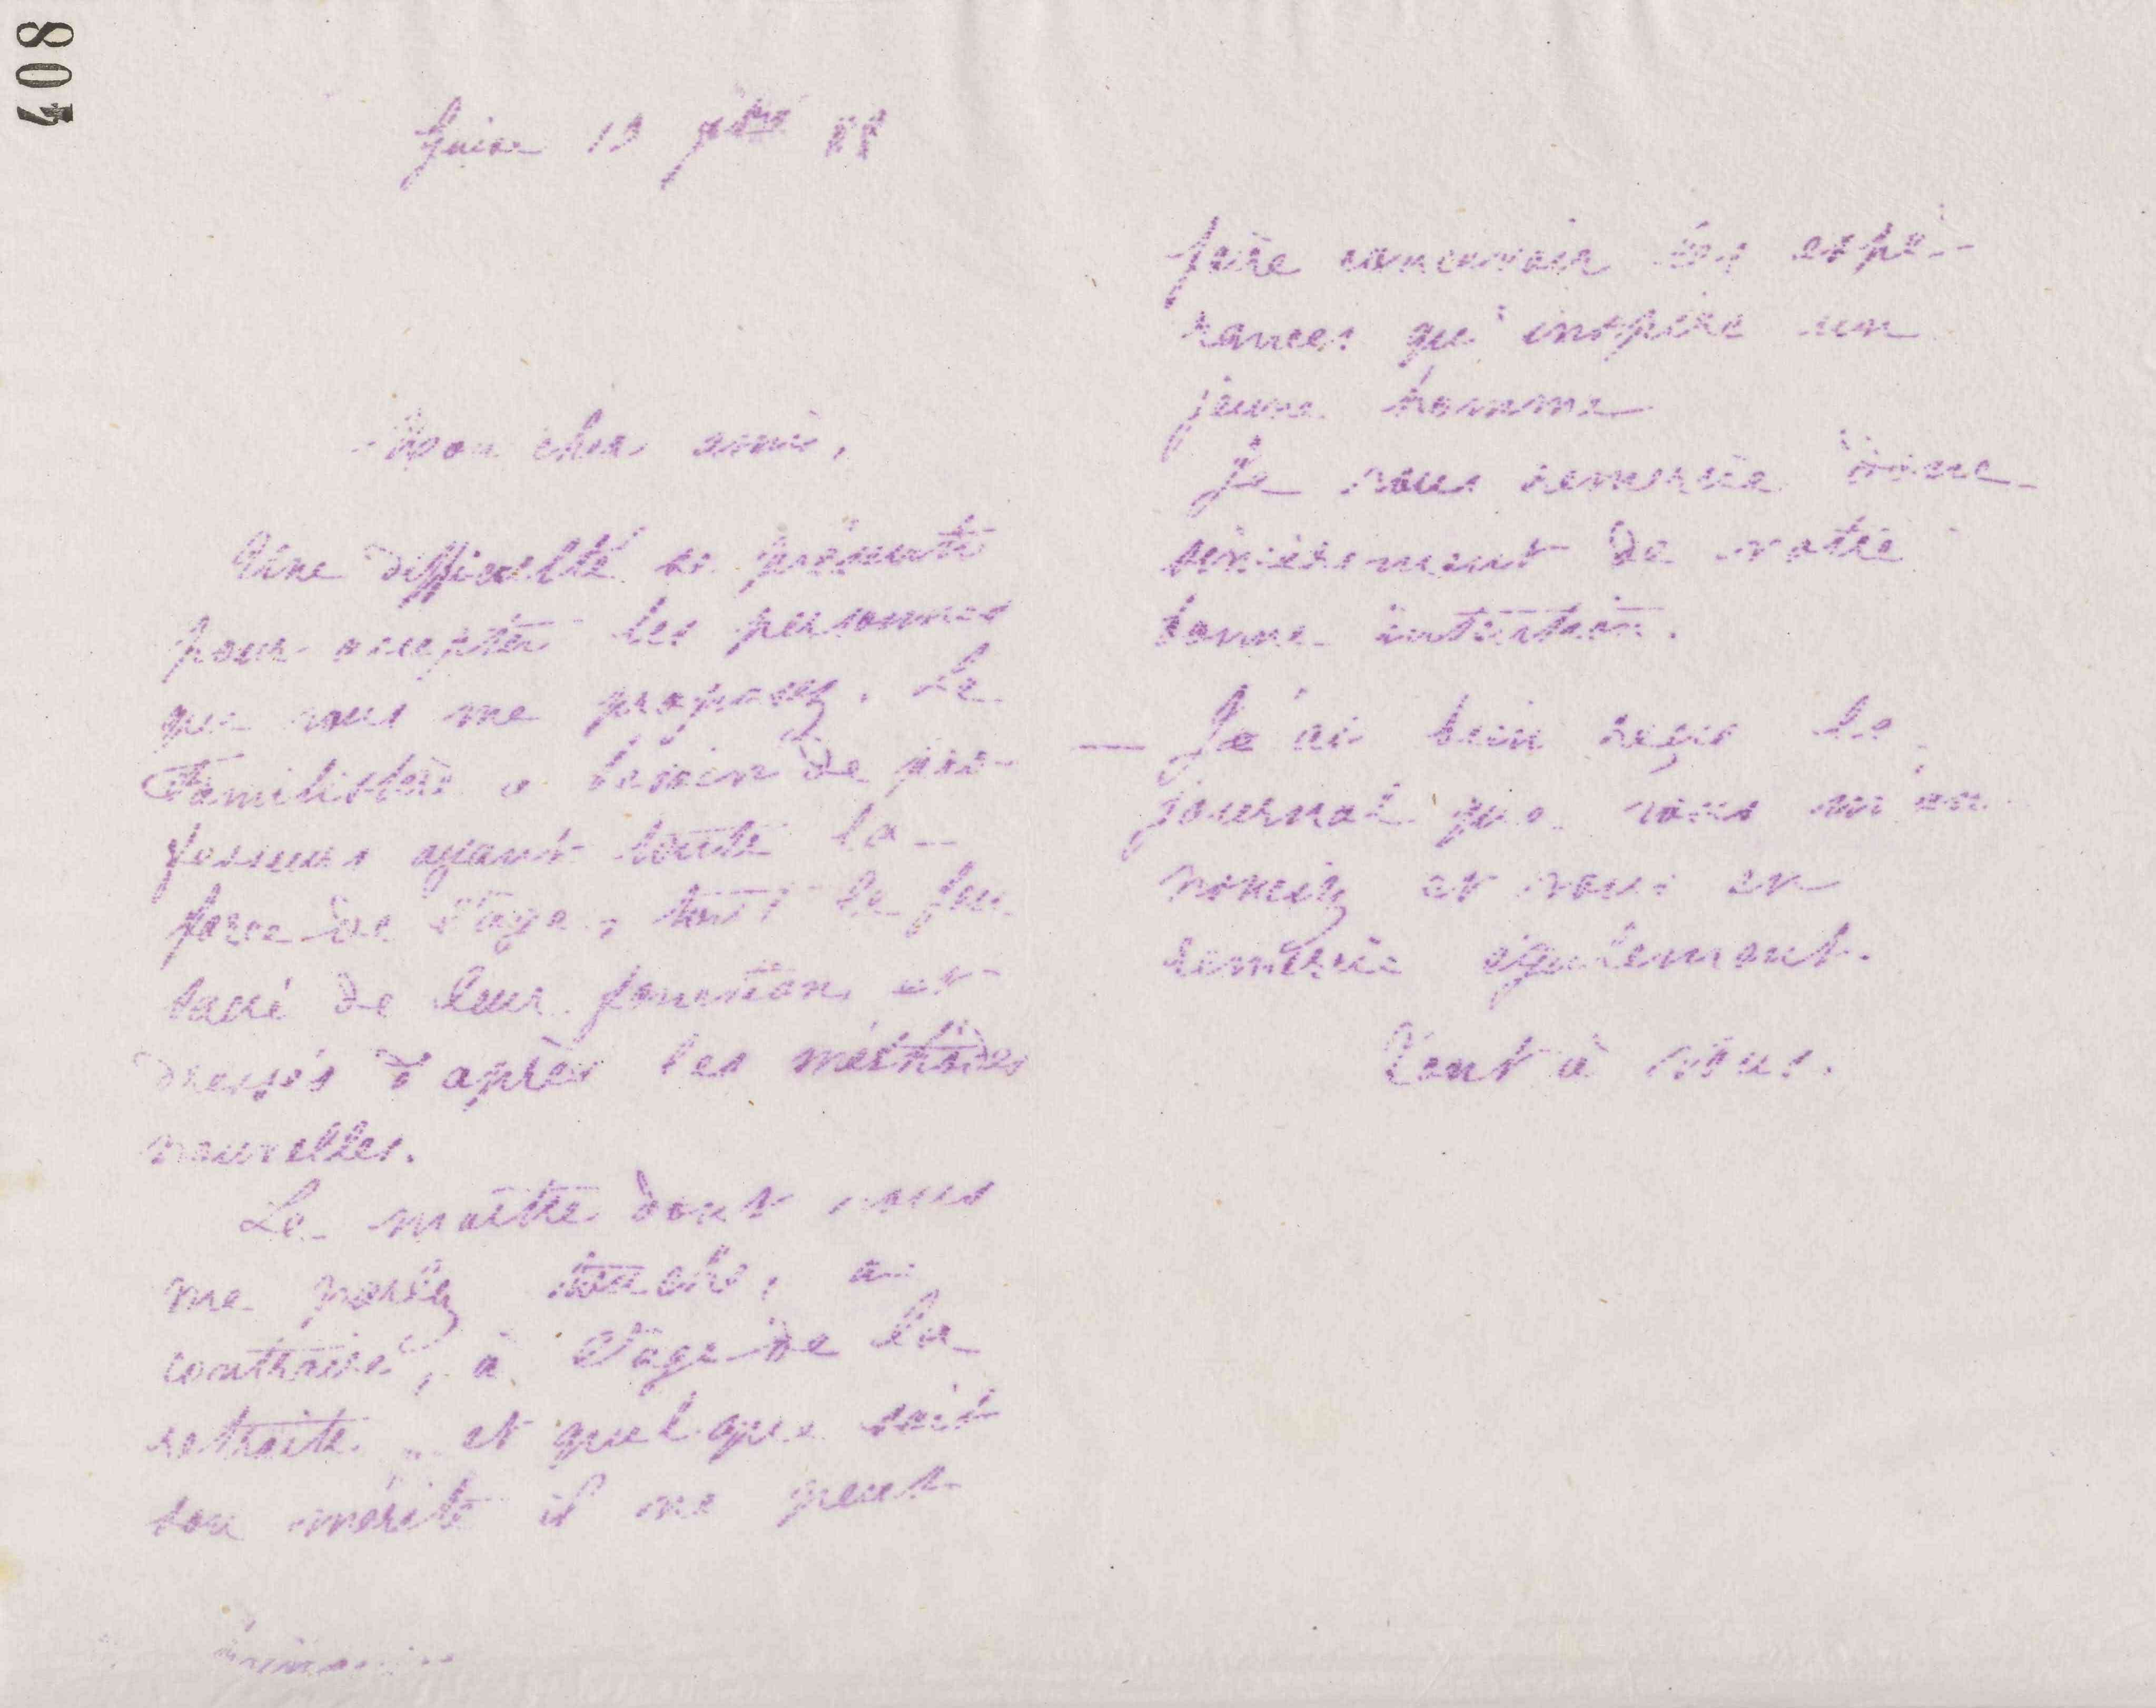 408
Guise 19 9bre 88
Mon cher ami,
Une difficulté se présente
pour accepter les personnes
que vous me proposez. Le
Familistère a besoin de pro-
fesseurs ayant toute la
force de l'âge, tout le feu
sacré de leur fonction et
dressés d'après les méthodes
nouvelles.
Le maître dont vous
me parlez touche, au
contraire, à l'âge de la
retraite et quel que soit
son mérite il ne peut
faire concevoir les espé-
rances qu'inspire un
jeune homme
Je vous remercie bien
sincèrement de votre
bonne intention.
— J'ai bien reçu le
journal que vous m'an
noncez et vous en
remercie également.
Tout à vous.